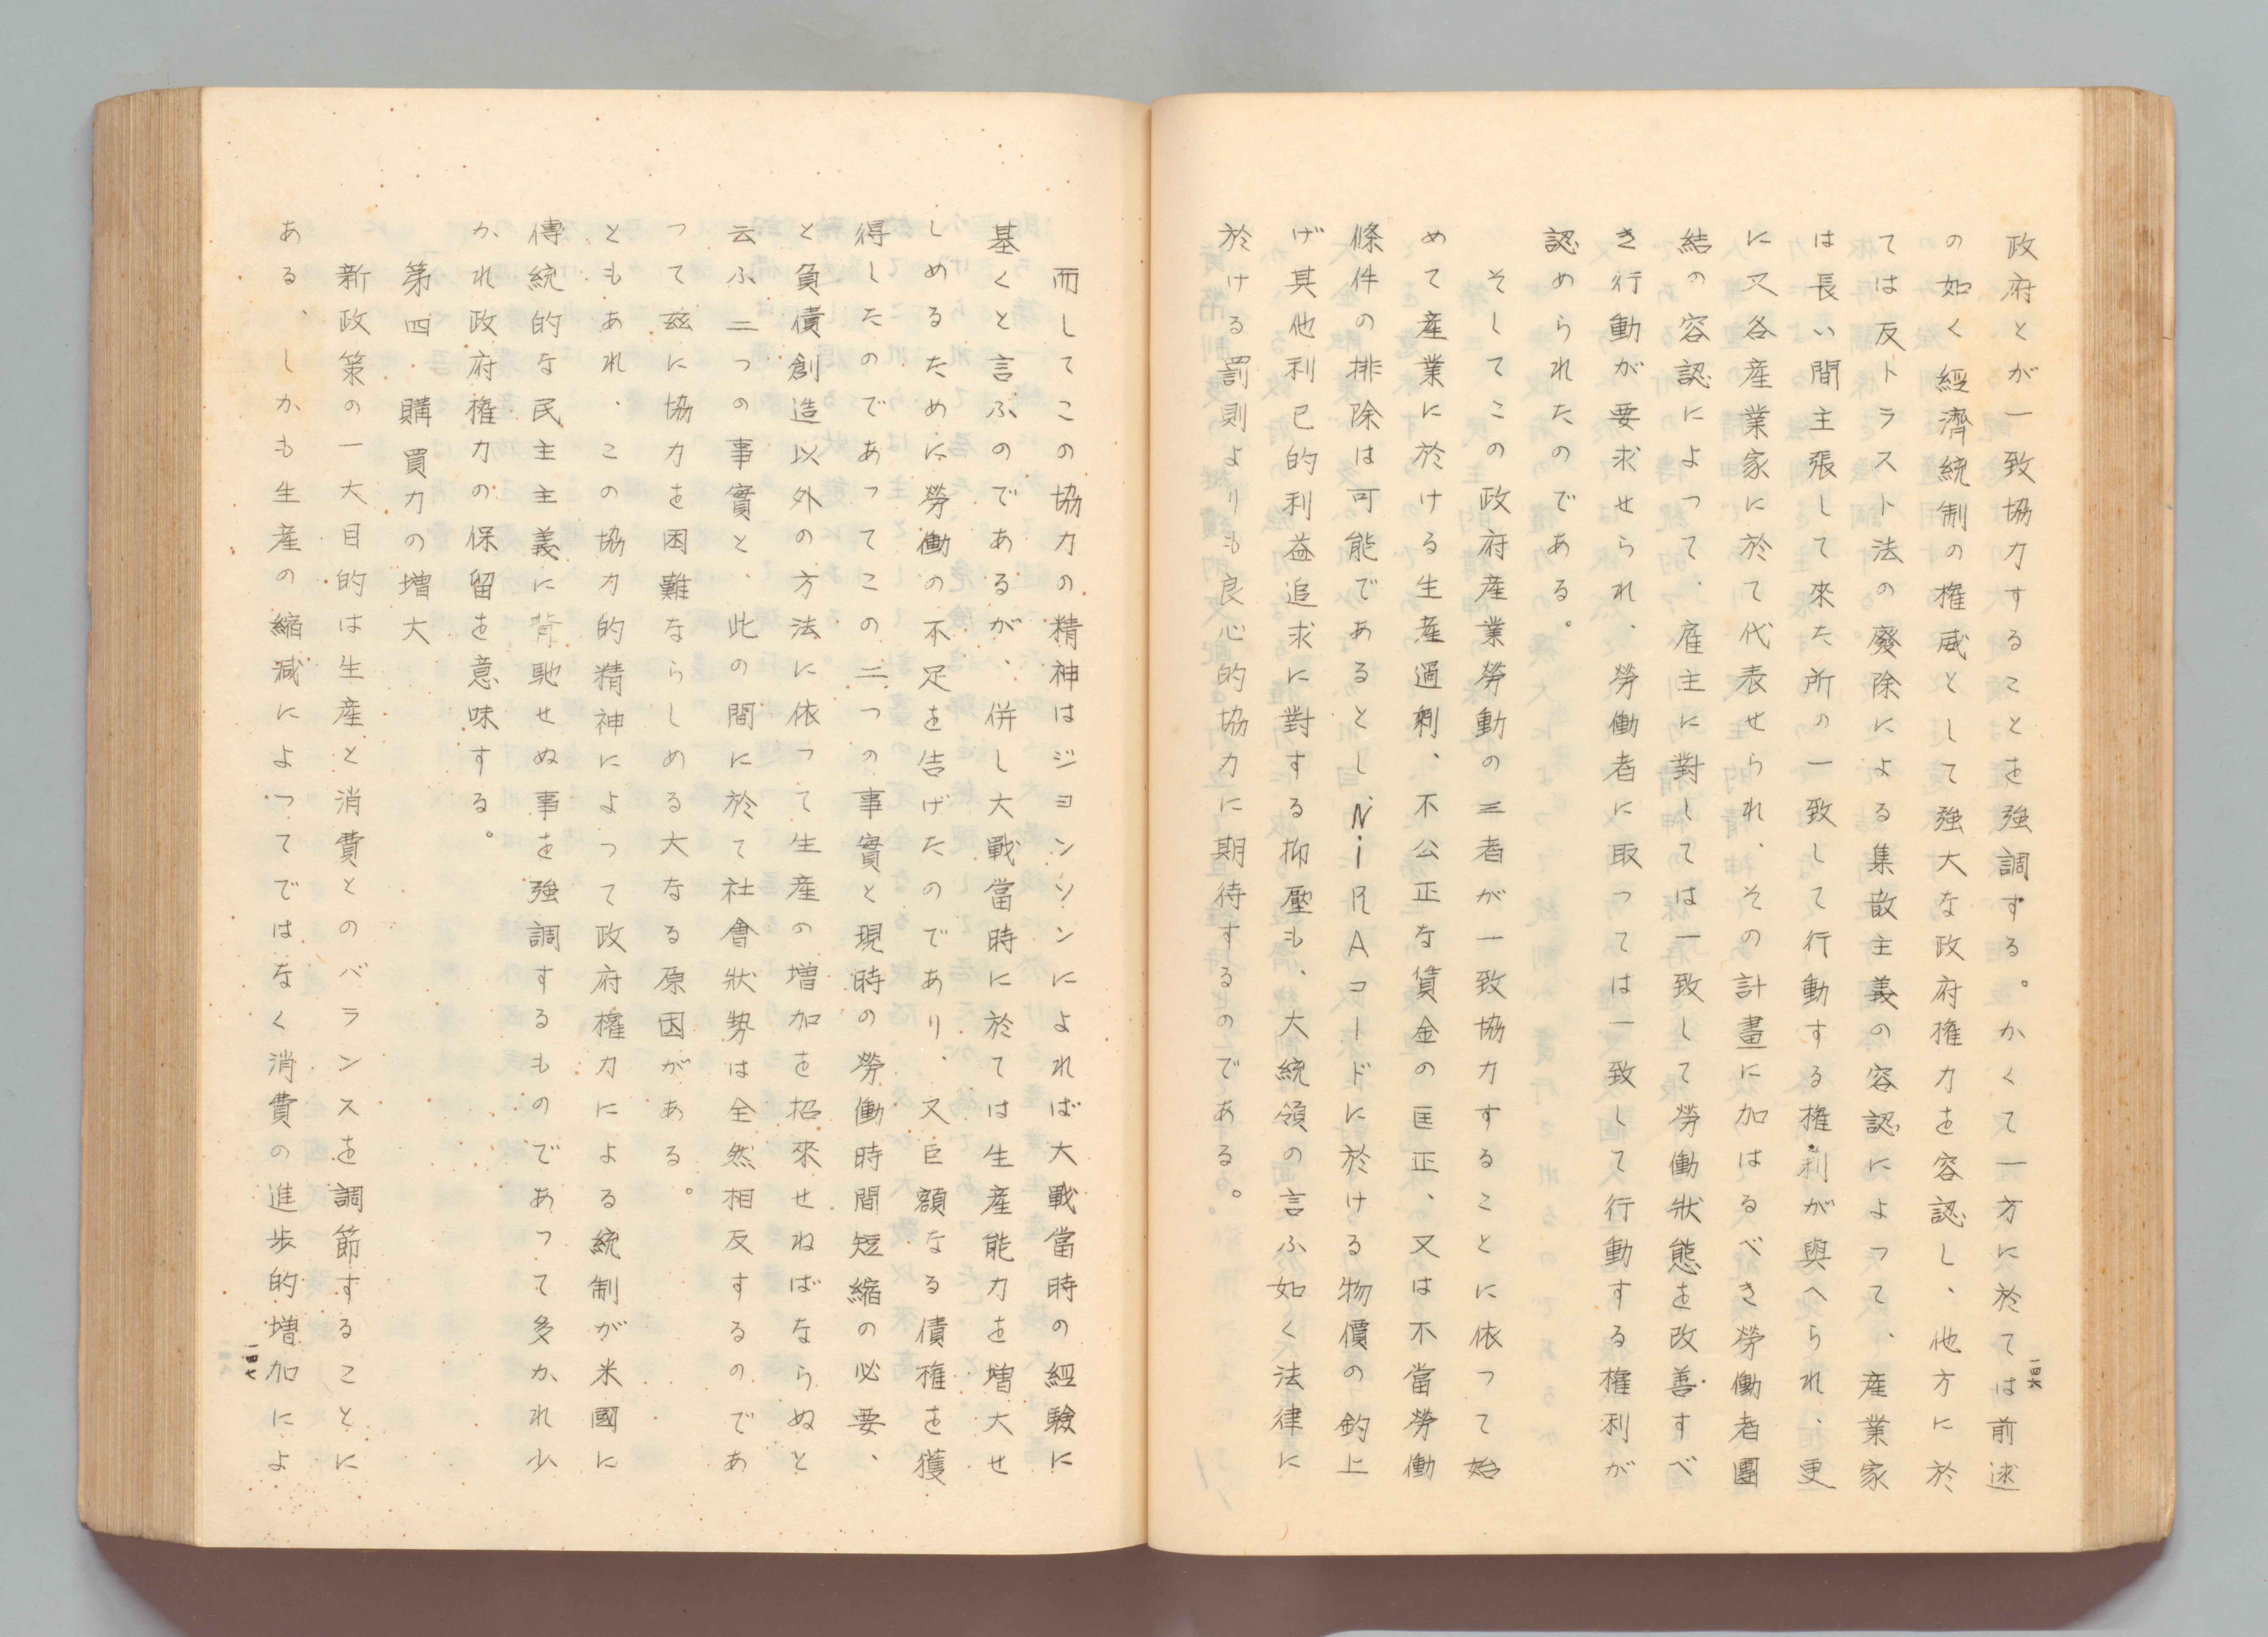 政府とが一致協力することを強調する。かくて一方に於ては前述
の如く經濟統制の権威として強大な政府権力を容認し、他方に於
ては反トラスト法の廢除による集散主義の容認によつて、産業家
は長い間主張して來た所の一致して行動する権利が與へられ、更
に又各産業家に於て代表せられ、その計畫に加はるべき勞働者團
結の容認によつて、雇主に對しては一致して勞働狀態を改善すべ
き行動が要求せられ、勞働者に取つては一致して行動する権利が
認められたのである。
そしてこの政府産業勞動の三者が一致協力することに依つて始
めて産業に於ける生産過剰、不公正な賃金の匡正、又は不當勞働
條件の排除は可能であるとしNiRAコードに於ける物價の釣上
げ其他利己的利益追求に對する抑壓も、大統領の言ふ如く法律に
於ける罰則よりも良心的協力に期待するのである。
一四六
而してこの協力の精神はジヨンソンによれば大戰當時の經驗に
基くと言ふのであるが、併し大戰當時に於ては生産能力を増大せ
しめるために勞働の不足を告げたのであり、又巨額なる債権を獲
得したのであつてこの二つの事實と現時の勞働時間短縮の必要、
と負債創造以外の方法に依つて生産の増加を招來せねばならぬと
云ふ二つの事實と、此の間に於て社會狀勢は全然相反するのであ
つて茲に協力を困難ならしめる大なる原因がある。
ともあれ、この協力的精神によつて政府権力による統制が米國に
傳統的な民主主義に背馳せぬ事を強調するものであつて多かれ少
かれ政府権力の保留を意味する。
第四　購買力の増大
新政策の一大目的は生産と消費とのバランスを調節することに
ある、しかも生産の縮減によつてではなく消費の進歩的増加によ